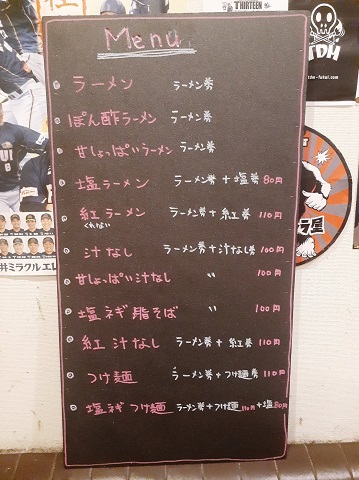 Menu
ラーメン ラーメン券
ぽん酢ラーメン ラーメン券
甘しょっぱいラーメン ラーメン券
塩ラーメン ラーメン券+塩券80円
紅ラーメン ラーメン券+紅券110円
くれない
汁なし ラーメン券+汁なし券100円
甘しょっぱい汁なし 〃 100円
塩ネギ脂そば 〃 100円
紅汁なし ラーメン券+紅券110円
つけ麺 ラーメン券+つけ麺券110円
塩ネギつけ麺 ラーメン券+つけ麺110円+塩80円
THIRTEEN
TDH
井ミラクルエレ